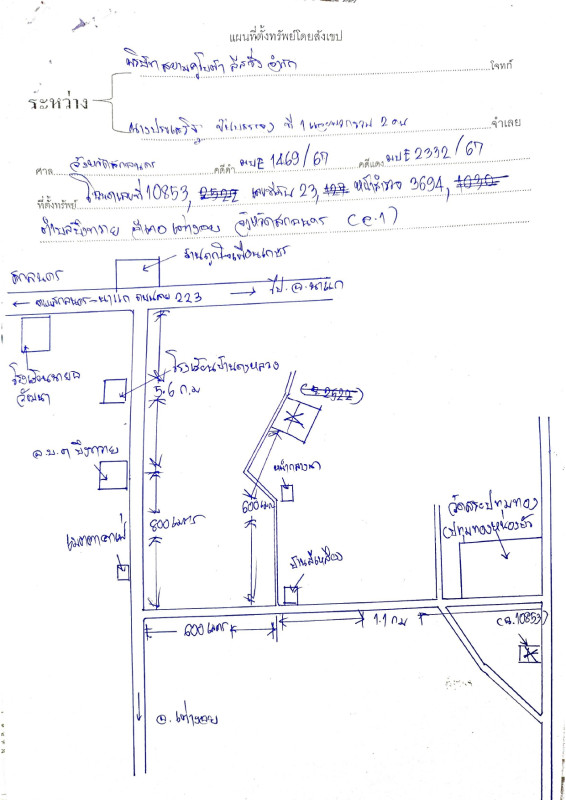 แผนที่ตั้งทรัพย์โดยสังเขป
บริษัท สยามคูโบต้า ลีสซิ่ง จำกัด โจทก์
ระหว่าง
ที่ 1 กับพวกรวม 2 คน จำเลย
ศาล จังหวัดสกลนคร คดีดำ ผบE 1469/67 คดีแดง ผบE 2332/67
ที่ตั้งทรัพย์ โฉนดเลขที่ 10853, 2522 เลขที่ดิน 23, 127 หน้าสำรวจ 3694, 1030
ตำบลบึงทวาย อำเภอเต่างอย จังหวัดสกลนคร (ล.1)
สกลนคร
ร้านถูกใจเพื่อนเกษตร
ถนนสกลนคร-นาแก ถนนเลข 223
ไป.อ.นาแก
โรงเรียนบ้านดงหลวง
5.6 ก.ม
วัฒนา
(ฉ 2522)
อ.บ.ต บึงทวาย
800 เมตร
600 เมตร
บ้านสีเหลือง
วัดสระปทุมทอง
600 เมตร
1.1 กม
(ฉ.10853)
อ.เต่างอย